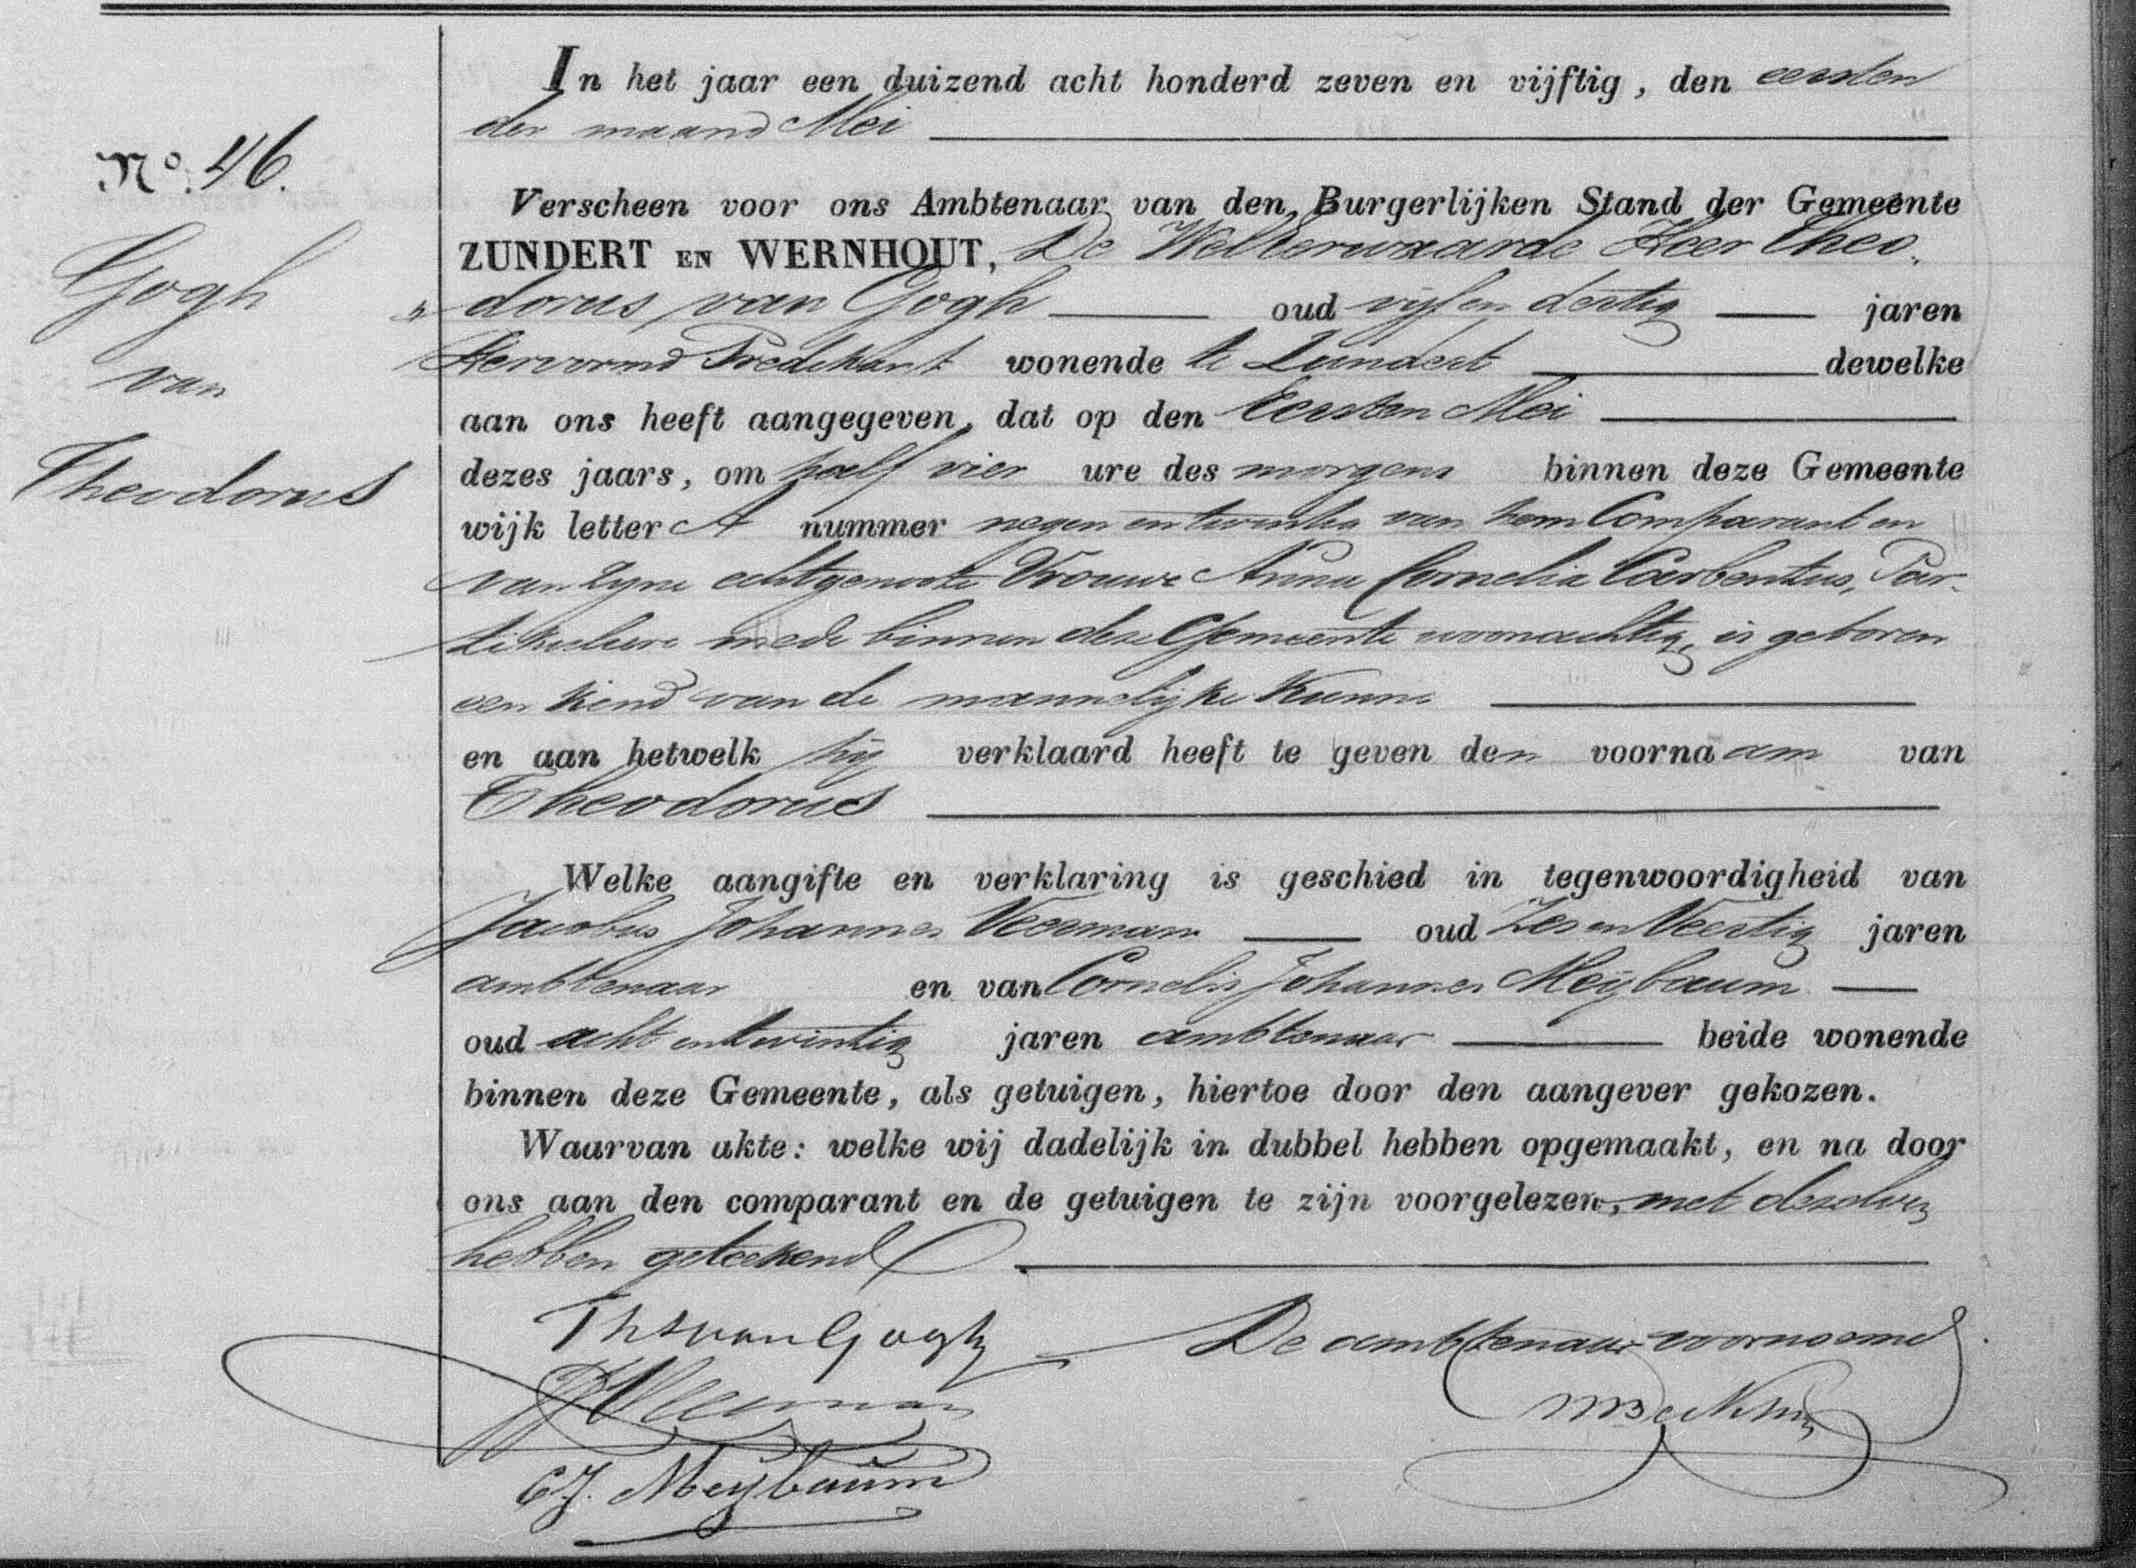 In het jaar een duizend acht honderd zeven en vijftig, den eersten
der maand Mei
No. 46.
Gogh
van
Theodorus
Verscheen voor ons Ambtenaar van den Burgerlijken Stand der Gemeente
ZUNDERT EN WERNHOUT, De Welleerwaarde Heer Theo-
dorus van Gogh oud vijf en dertig jaren
Hervormd Predikant wonende te Zundert dewelke
aan ons heeft aangegeven, dat op den Eersten Mei
dezes jaars, om half vier ure des morgens binnen deze Gemeente
wijk letter A nummer negen en twintig van hem Comparant en
van zyne echtgenoote Vrouwe Anna Cornelia Carbentus, Par-
tikuliere mede binnen deze Gemeente woonachtig, is geboren
een kind van de mannelijke Kunne
en aan hetwelk hij verklaard heeft te geven den voornaam van
Theodorus
Welke aangifte en verklaring is geschied in tegenwoordigheid van
Jacobus Johannes Veerman oud Zes en Veertig jaren
ambtenaar en van Cornelis Johannes Meijbaum
oud acht en twintig jaren ambtenaar beide wonende
binnen deze Gemeente, als getuigen, hiertoe door den aangever gekozen.
Waarvan akte: welke wij dadelijk in dubbel hebben opgemaakt, en na door
ons aan den comparant en de getuigen te zijn voorgelezen, met dezelve
hebben geteekend
Ths van Gogh
De ambtenaar voornoemd
JJ Veerman
CJ. Meijbaum